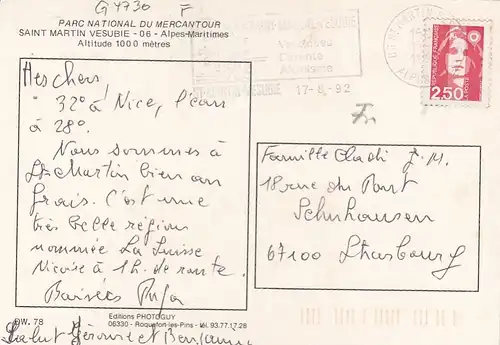 G4730 F
PARC NATIONAL DU MERCANTOUR
SAINT MARTIN VESUBIE - 06 - Alpes-Maritimes
Altitude 1000 mètres
17-8-92
REPUBLIQUE FRANÇAISE
LA POSTE
2,50
Mes chers,
32° à Nice, l'eau
à 28°.
Nous sommes à
St Martin bien au
frais. C'est une
très belle région
nommée La Suisse
Niçoise à 1h. de route.
Baisers
Famille J.M.
18 rue du Pont
Schnhausen
67100 Strasbourg
DW. 78
Editions PHOTOGUY
06330 - Roquefort-les-Pins - tél. 93.77.17.28
Salut Jérome et Benjamin